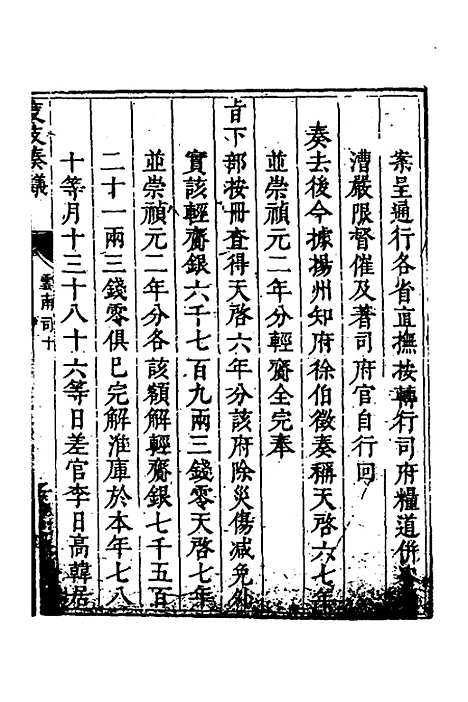 案呈通行各省直撫按轉行司府糧道併
漕嚴限督催及著司府官自行回
奏去後今據揚州知府徐伯徵奏稱天啓六七年
並崇禎元二年分輕齎全完奉
旨下部按冊查得天啓六年分該府除災傷減免外
實該輕齎銀六千七百九兩三錢零天啓七年
並崇禎元二年分各該額解輕齎銀七千五百
二十一兩三錢零俱已完解淮庫於本年七八
十等月十三十八十六等日差官李日高韓居
度支奏議
雲南司十